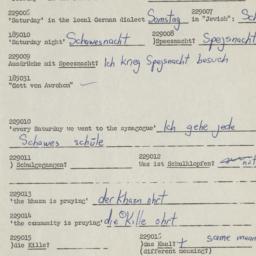 229006 229007
'Saturday' in the local German dialect Samstag in "Jewish":
185010 229008
'Saturday night' Schawesnacht )Spejsnacht? Spejsnacht
229009
Ausdrücke mit Spejsnacht? Ich krieg Spejsnacht besuch
185031
"Gott von Avrohon"
229010
'every Saturday we went to the synagogue' Ich gehe jede
Schawes schüle
229011 229012
) Schulgegangen? Was ist Schulklopfen?
229013
'the khazn is praying' der Khasn ohrt
229014
'the community is praying' die Kille ohrt
229015 229016 same mean
)die Kille? )das Kaul? +
(different meaning?)